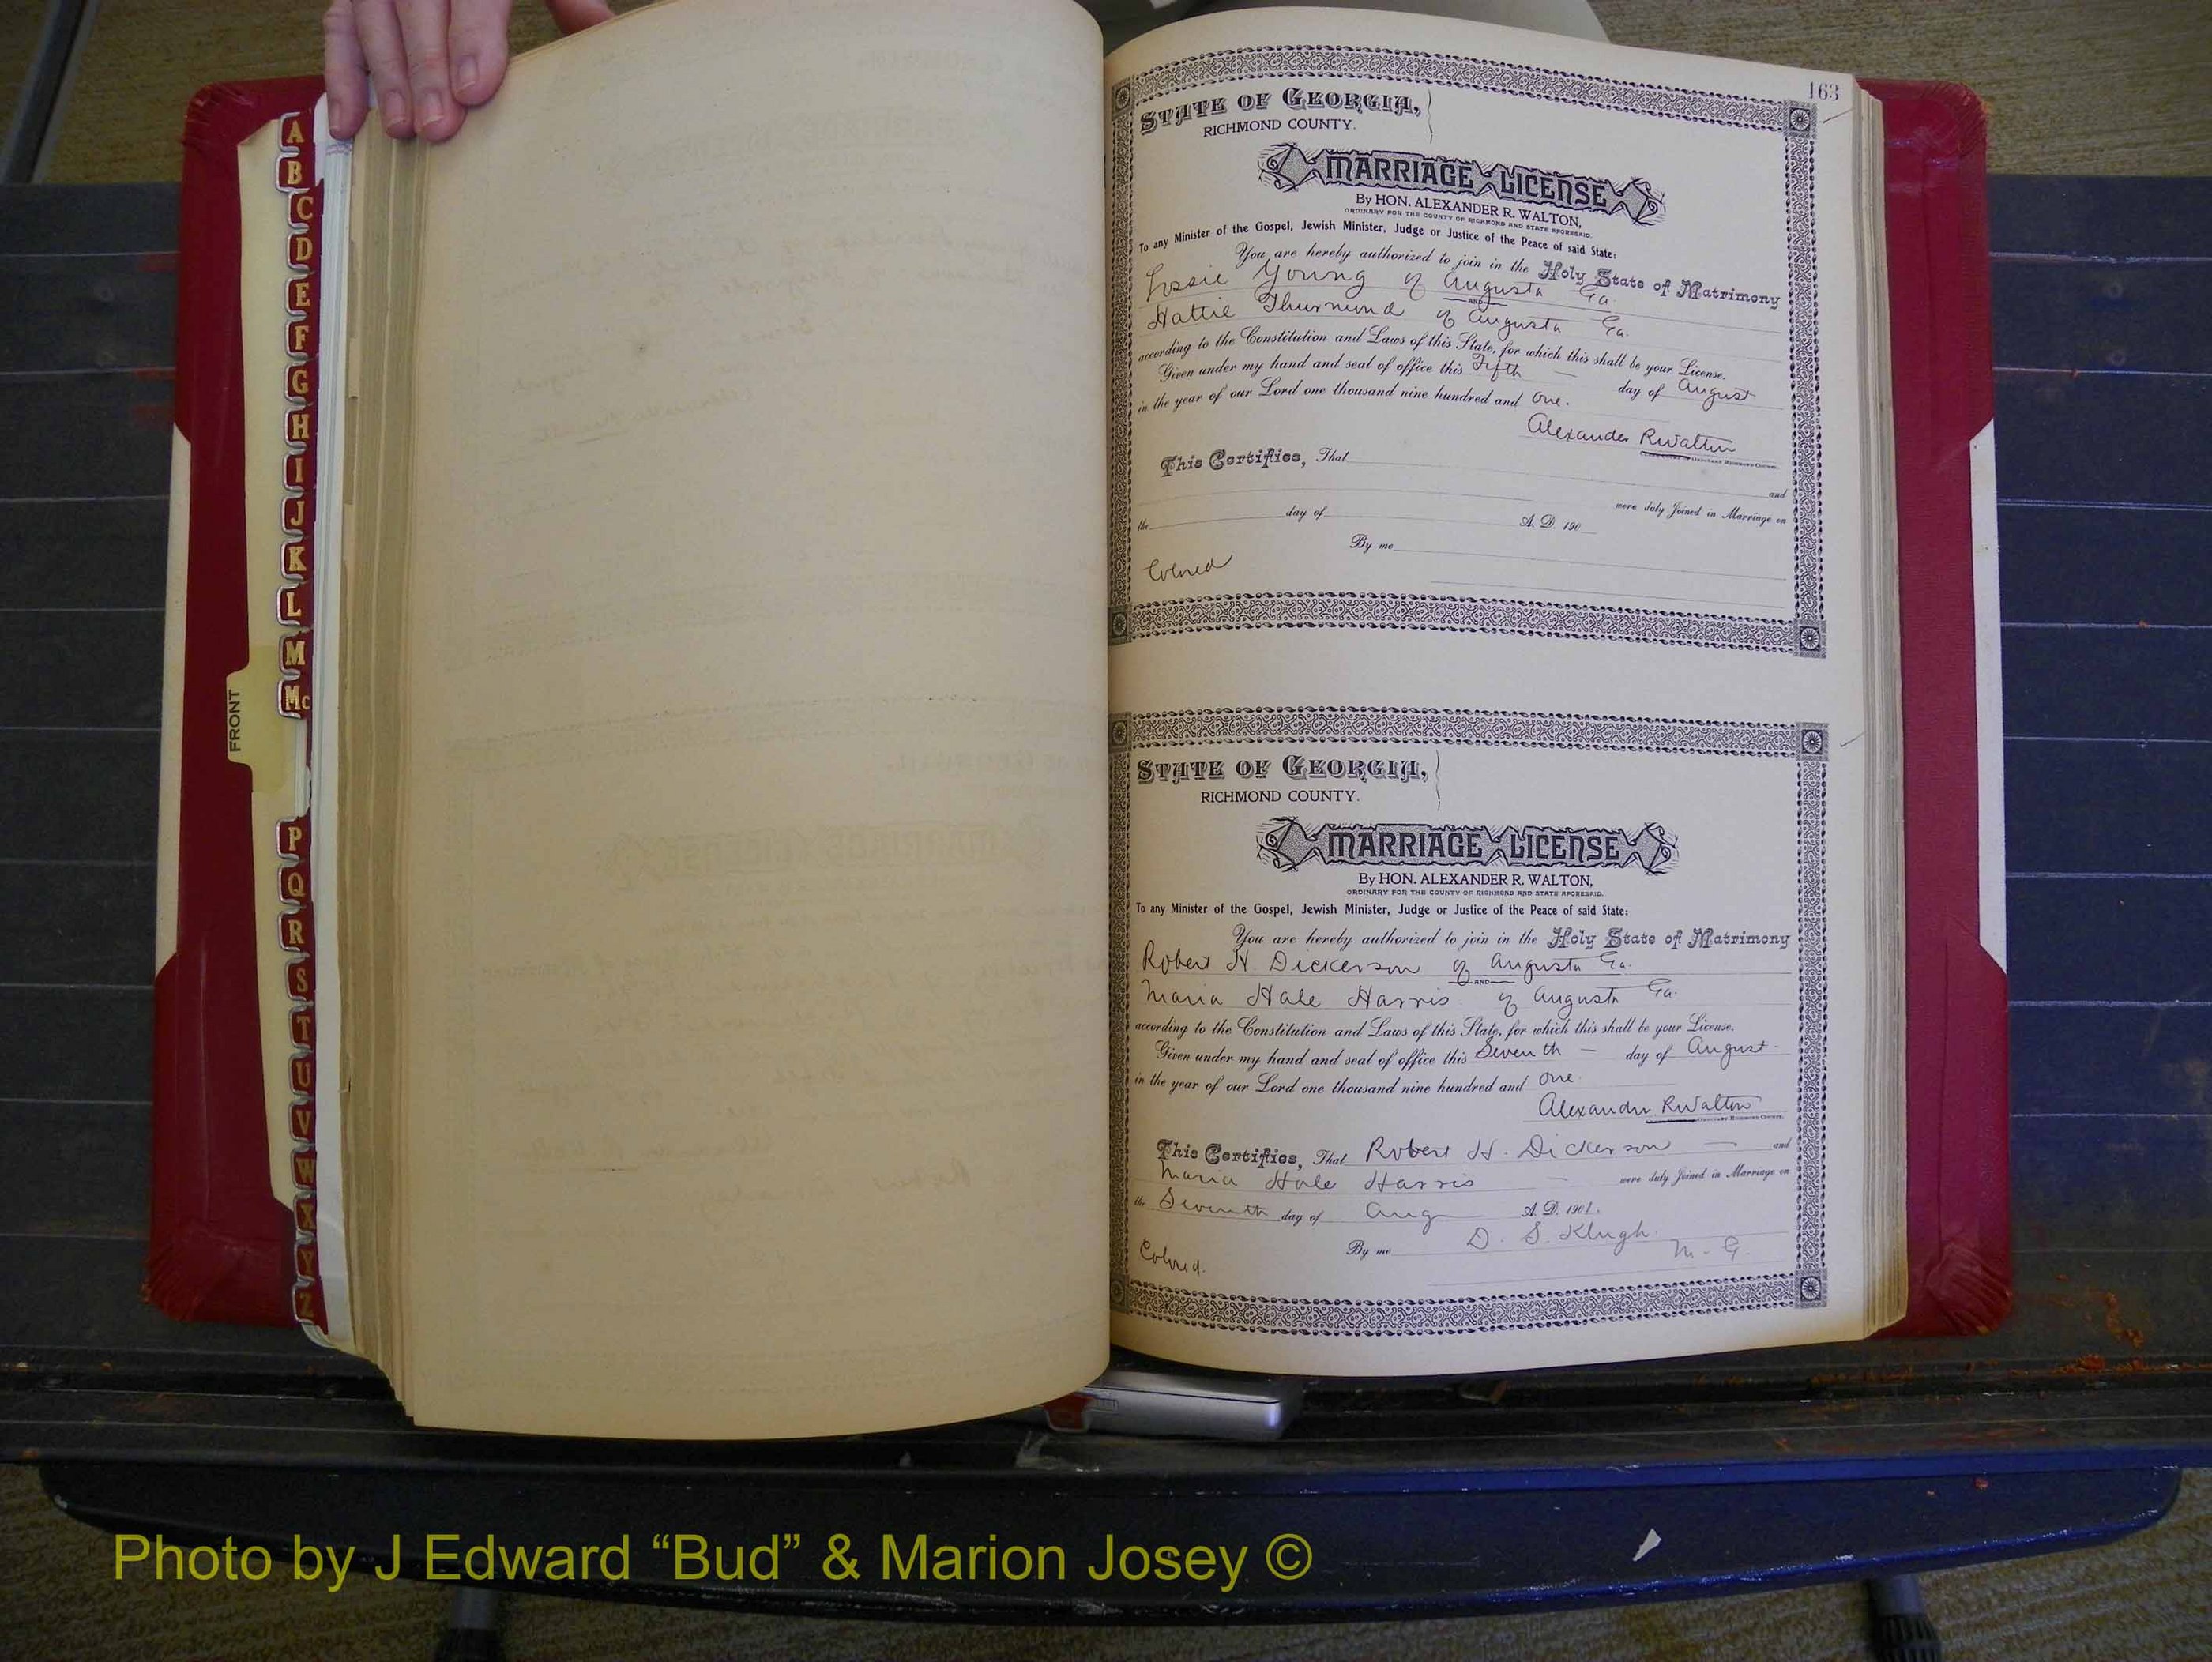 A
B
C
D
E
F
G
H
I
J
K
L
M
Mc
FRONT
P
Q
R
S
T
U
V
W
X
Y
Z
163
STATE OF GEORGIA,
RICHMOND COUNTY.
MARRIAGE LICENSE
By HON. ALEXANDER R. WALTON,
ORDINARY FOR THE COUNTY OF RICHMOND AND STATE AFORESAID.
To any Minister of the Gospel, Jewish Minister, Judge or Justice of the Peace of said State:
You are hereby authorized to join in the Holy State of Matrimony
Young of Augusta Ga.
AND
Hattie Thurmond of Augusta Ga.
according to the Constitution and Laws of this State, for which this shall be your License.
Given under my hand and seal of office this Fifth — day of August
in the year of our Lord one thousand nine hundred and One.
Alexander R Walton
ORDINARY RICHMOND COUNTY.
This Certifies, That
and
were duly Joined in Marriage on
the day of A. D. 190
By me
Colored
STATE OF GEORGIA,
RICHMOND COUNTY.
MARRIAGE LICENSE
By HON. ALEXANDER R. WALTON,
ORDINARY FOR THE COUNTY OF RICHMOND AND STATE AFORESAID.
To any Minister of the Gospel, Jewish Minister, Judge or Justice of the Peace of said State:
You are hereby authorized to join in the Holy State of Matrimony
Robert H. Dickerson of Augusta Ga.
AND
Maria Hale Harris of Augusta Ga.
according to the Constitution and Laws of this State, for which this shall be your License.
Given under my hand and seal of office this Seventh — day of August
in the year of our Lord one thousand nine hundred and One.
Alexander R Walton
ORDINARY RICHMOND COUNTY.
This Certifies, That Robert H. Dickerson — and
Maria Hale Harris — were duly Joined in Marriage on
the Seventh day of Aug A. D. 1901.
By me D. S. Klugh.
M. G.
Colored.
Photo by J Edward “Bud” & Marion Josey ©